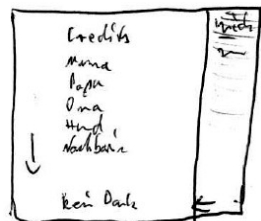 Credits
Mama
Papa
Oma
Hund
Nachbarin
kein Dank